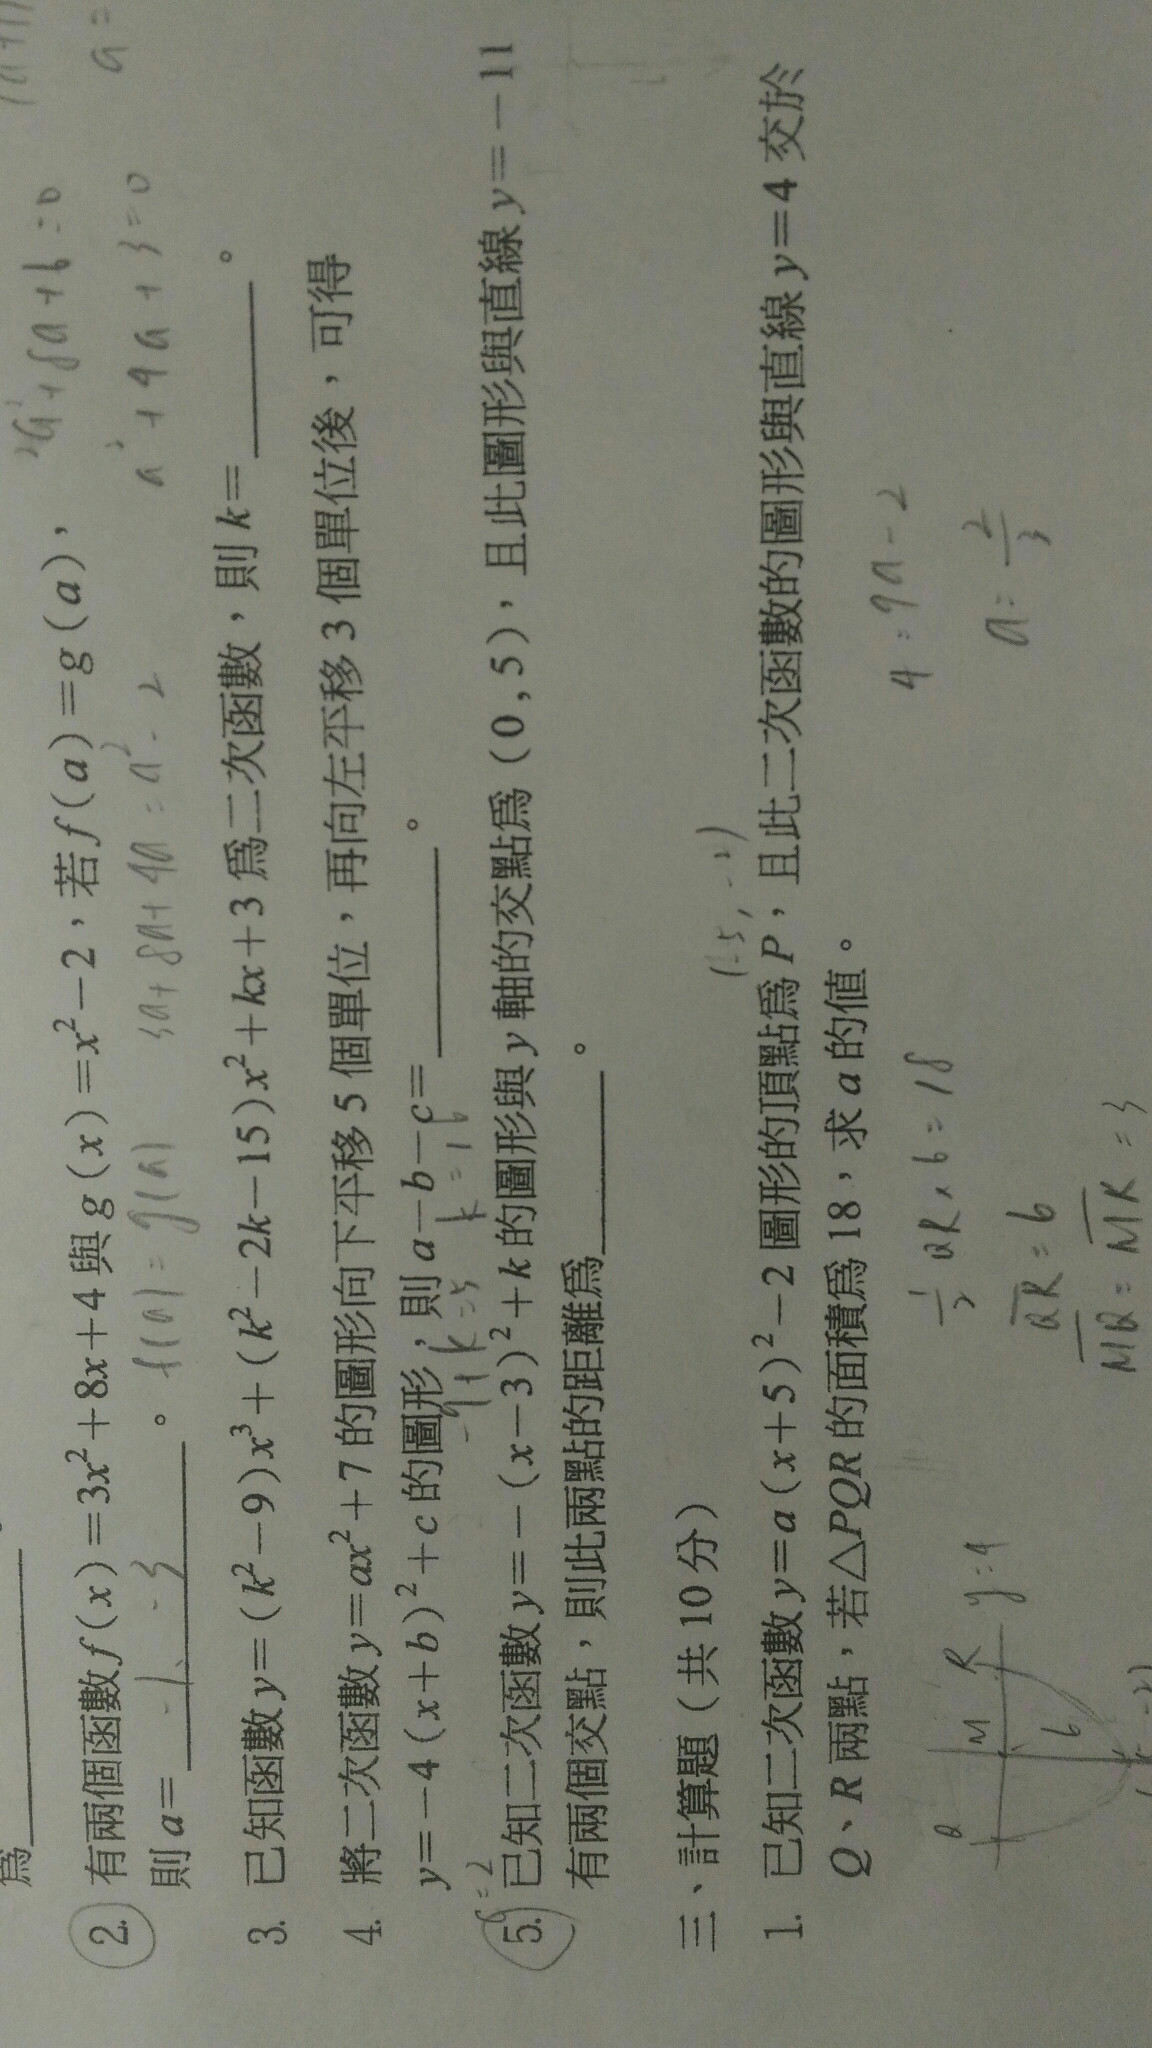 (a+1)
a=
2a²+8a+6=0
a²+4a+3=0
為
2. 有兩個函數f(x)=3x²+8x+4與g(x)=x²-2,若f(a)=g(a),
則a= -1、-3 。
f(a)=g(a)
3a+8a+4a=a²-2
3. 已知函數y=(k²-9)x³+(k²-2k-15)x²+kx+3為二次函數,則k= 。
4. 將二次函數y=ax²+7的圖形向下平移5個單位,再向左平移3個單位後,可得
y=-4(x+b)²+c的圖形,則a-b-c= 。
c=2
-9+k=5
k=14
5. 已知二次函數y=-(x-3)²+k的圖形與y軸的交點為(0,5),且此圖形與直線y=-11
有兩個交點,則此兩點的距離為 。
三、計算題(共10分)
(-5,-2)
1. 已知二次函數y=a(x+5)²-2圖形的頂點為P,且此二次函數的圖形與直線y=4交於
Q、R兩點,若△PQR的面積為18,求a的值。
Q M R y=4
6
½QR×6=18
QR=6
MQ=MR=3
4=9a-2
a=2/3